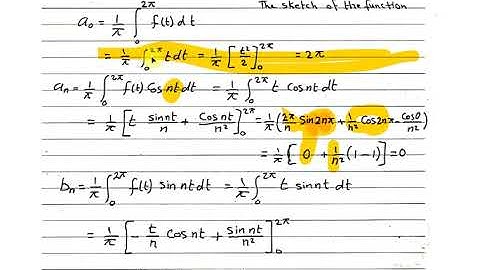 The sketch of the function
a₀ = 1/π ∫₀^2π f(t) dt
= 1/π ∫₀^2π t dt = 1/π [t²/2]₀^2π = 2π
aₙ = 1/π ∫₀^2π f(t) Cos nt dt = 1/π ∫₀^2π t cosnt dt
= 1/π [t sinnt/n + Cosnt/n²]₀^2π = 1/π (2π/n Sin2nπ + 1/n² Cos2nπ - cos0/n²)
= 1/π [0 + 1/n² (1-1)] = 0
bₙ = 1/π ∫₀^2π f(t) sinnt dt = 1/π ∫₀^2π t sinnt dt
= 1/π [- t/n Cosnt + sinnt/n²]₀^2π